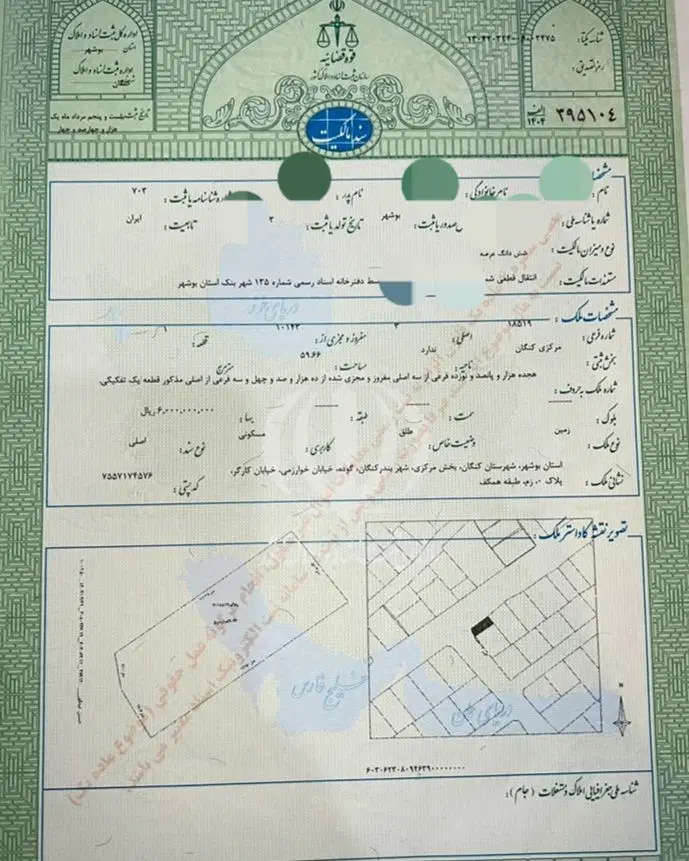 اداره کل ثبت اسناد و املاک
استان بوشهر
اداره ثبت اسناد و املاک
کنگان
تاریخ ثبت: بیست و پنجم مرداد ماه یک
هزار و چهارصد و چهار
قوه قضائیه
سازمان ثبت اسناد و املاک کشور
سند مالکیت
شناسه یکتا:
رمز تصدیق:
الف
۱۴۰۴
۳۹۵۱۰۴
نام: نام خانوادگی: نام پدر: شماره شناسنامه یا ثبت: ۷۰۳
شماره یا شناسه ملی: محل صدور یا ثبت: بوشهر تاریخ تولد یا ثبت: ۳ تابعیت: ایران
نوع و میزان مالکیت: شش دانگ عرصه
مستندات مالکیت: انتقال قطعی دفترخانه اسناد رسمی شماره ۱۳۵ شهر بنک استان بوشهر
مشخصات ملک:
شماره فرعی: ۱۸۵۱۹ اصلی: ۳ مفروز و مجزی از: ۱۰۱۴۳ قطعه: ۱
بخش ثبتی: مرکزی کنگان ناحیه: ندارد مساحت: ۵۹.۶۶ مترمربع
شماره ملک به حروف: هجده هزار و پانصد و نوزده فرعی از سه اصلی مفروز و مجزی شده از ده هزار و صد و چهل و سه فرعی از اصلی مذکور قطعه یک تفکیکی،
بلوک: سمت: طبقه: بها: ۶،۰۰۰،۰۰۰،۰۰۰ ریال
نوع ملک: زمین وضعیت خاص: طلق کاربری: مسکونی نوع سند: اصلی
نشانی ملک: استان بوشهر، شهرستان کنگان، بخش مرکزی، شهر بندرکنگان، گوده، خیابان خوارزمی، خیابان کارگر،
پلاک ۰، طبقه همکف. کد پستی: ۷۵۵۷۱۷۴۵۷۶
تصویر نقشه کاداستر ملک:
دریای خزر
خلیج فارس
دریای عمان
N
شناسه ملی جغرافیایی املاک و مستغلات (جام):